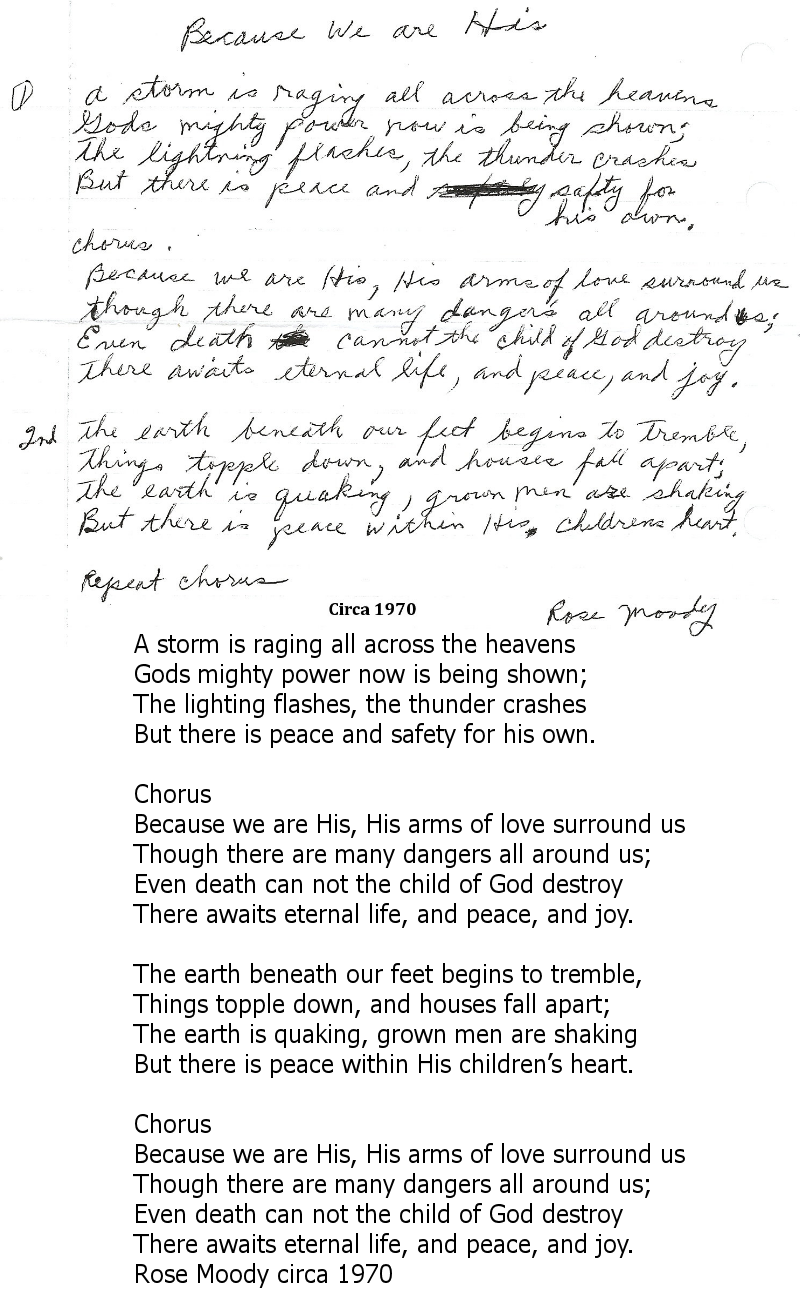 Because We are His
1 a storm is raging all across the heavens
Gods mighty power now is being shown;
The lightning flashes, the thunder crashes
But there is peace and safty for
his own.
chorus.
Because we are His, His arms of love surround us
though there are many dangers all around us;
Even death cannot the child of God destroy
There awaits eternal life, and peace, and joy.
2nd The earth beneath our feet begins to tremble,
Things topple down, and houses fall apart;
The earth is quaking, grown men are shaking
But there is peace within His childrens heart.
Repeat chorus
Circa 1970
Rose Moody
A storm is raging all across the heavens
Gods mighty power now is being shown;
The lighting flashes, the thunder crashes
But there is peace and safety for his own.
Chorus
Because we are His, His arms of love surround us
Though there are many dangers all around us;
Even death can not the child of God destroy
There awaits eternal life, and peace, and joy.
The earth beneath our feet begins to tremble,
Things topple down, and houses fall apart;
The earth is quaking, grown men are shaking
But there is peace within His children’s heart.
Chorus
Because we are His, His arms of love surround us
Though there are many dangers all around us;
Even death can not the child of God destroy
There awaits eternal life, and peace, and joy.
Rose Moody circa 1970